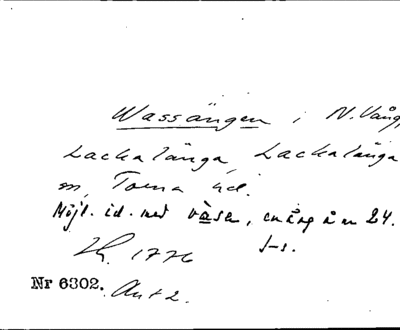 Wassängen i N. Vång,
Lackalänga, Lackalänga
sn, Torna hd.
Möjl. id. med väsen,
J-s.
1776
Nr 6302. Akt 2.